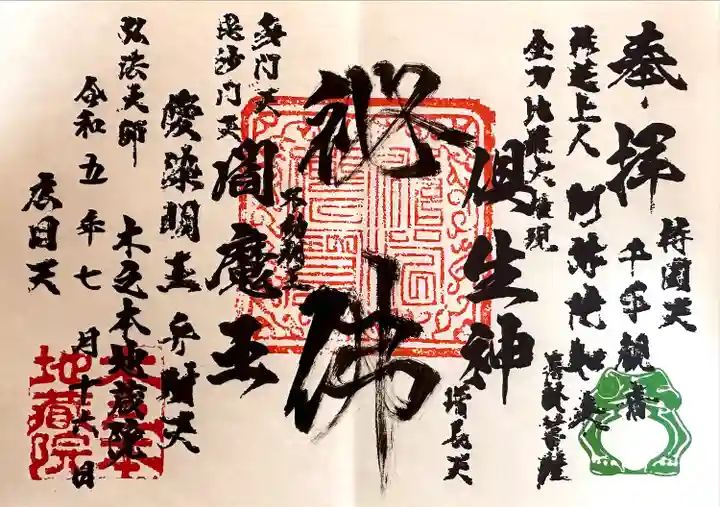 奉拝
持国天
千手観音
菩薩
阿弥陀如来
金刀比羅大権現
倶生神
増長天
秘佛
不動明王
閻魔王
多門天
毘沙門天
愛染明王
弁財天
弘法大師
木之本地蔵院
令和五年七月十六日
広目天
木之本
地蔵院